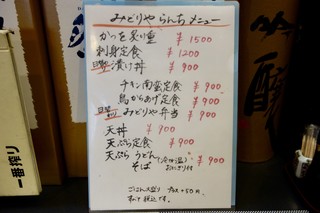 みどりや らんち メニュー
かつを炙り重 ¥1500
刺身定食 ¥1200
漬け丼 ¥900
チキン南蛮定食 ¥900
鳥からあげ定食 ¥900
みどりや弁当 ¥900
天丼 ¥900
天ぷら定食 ¥900
天ぷら うどん (冷or温) ¥900
そば おにぎり付
ごはん大盛り プラス50円。
すべて税込です。
一番搾り